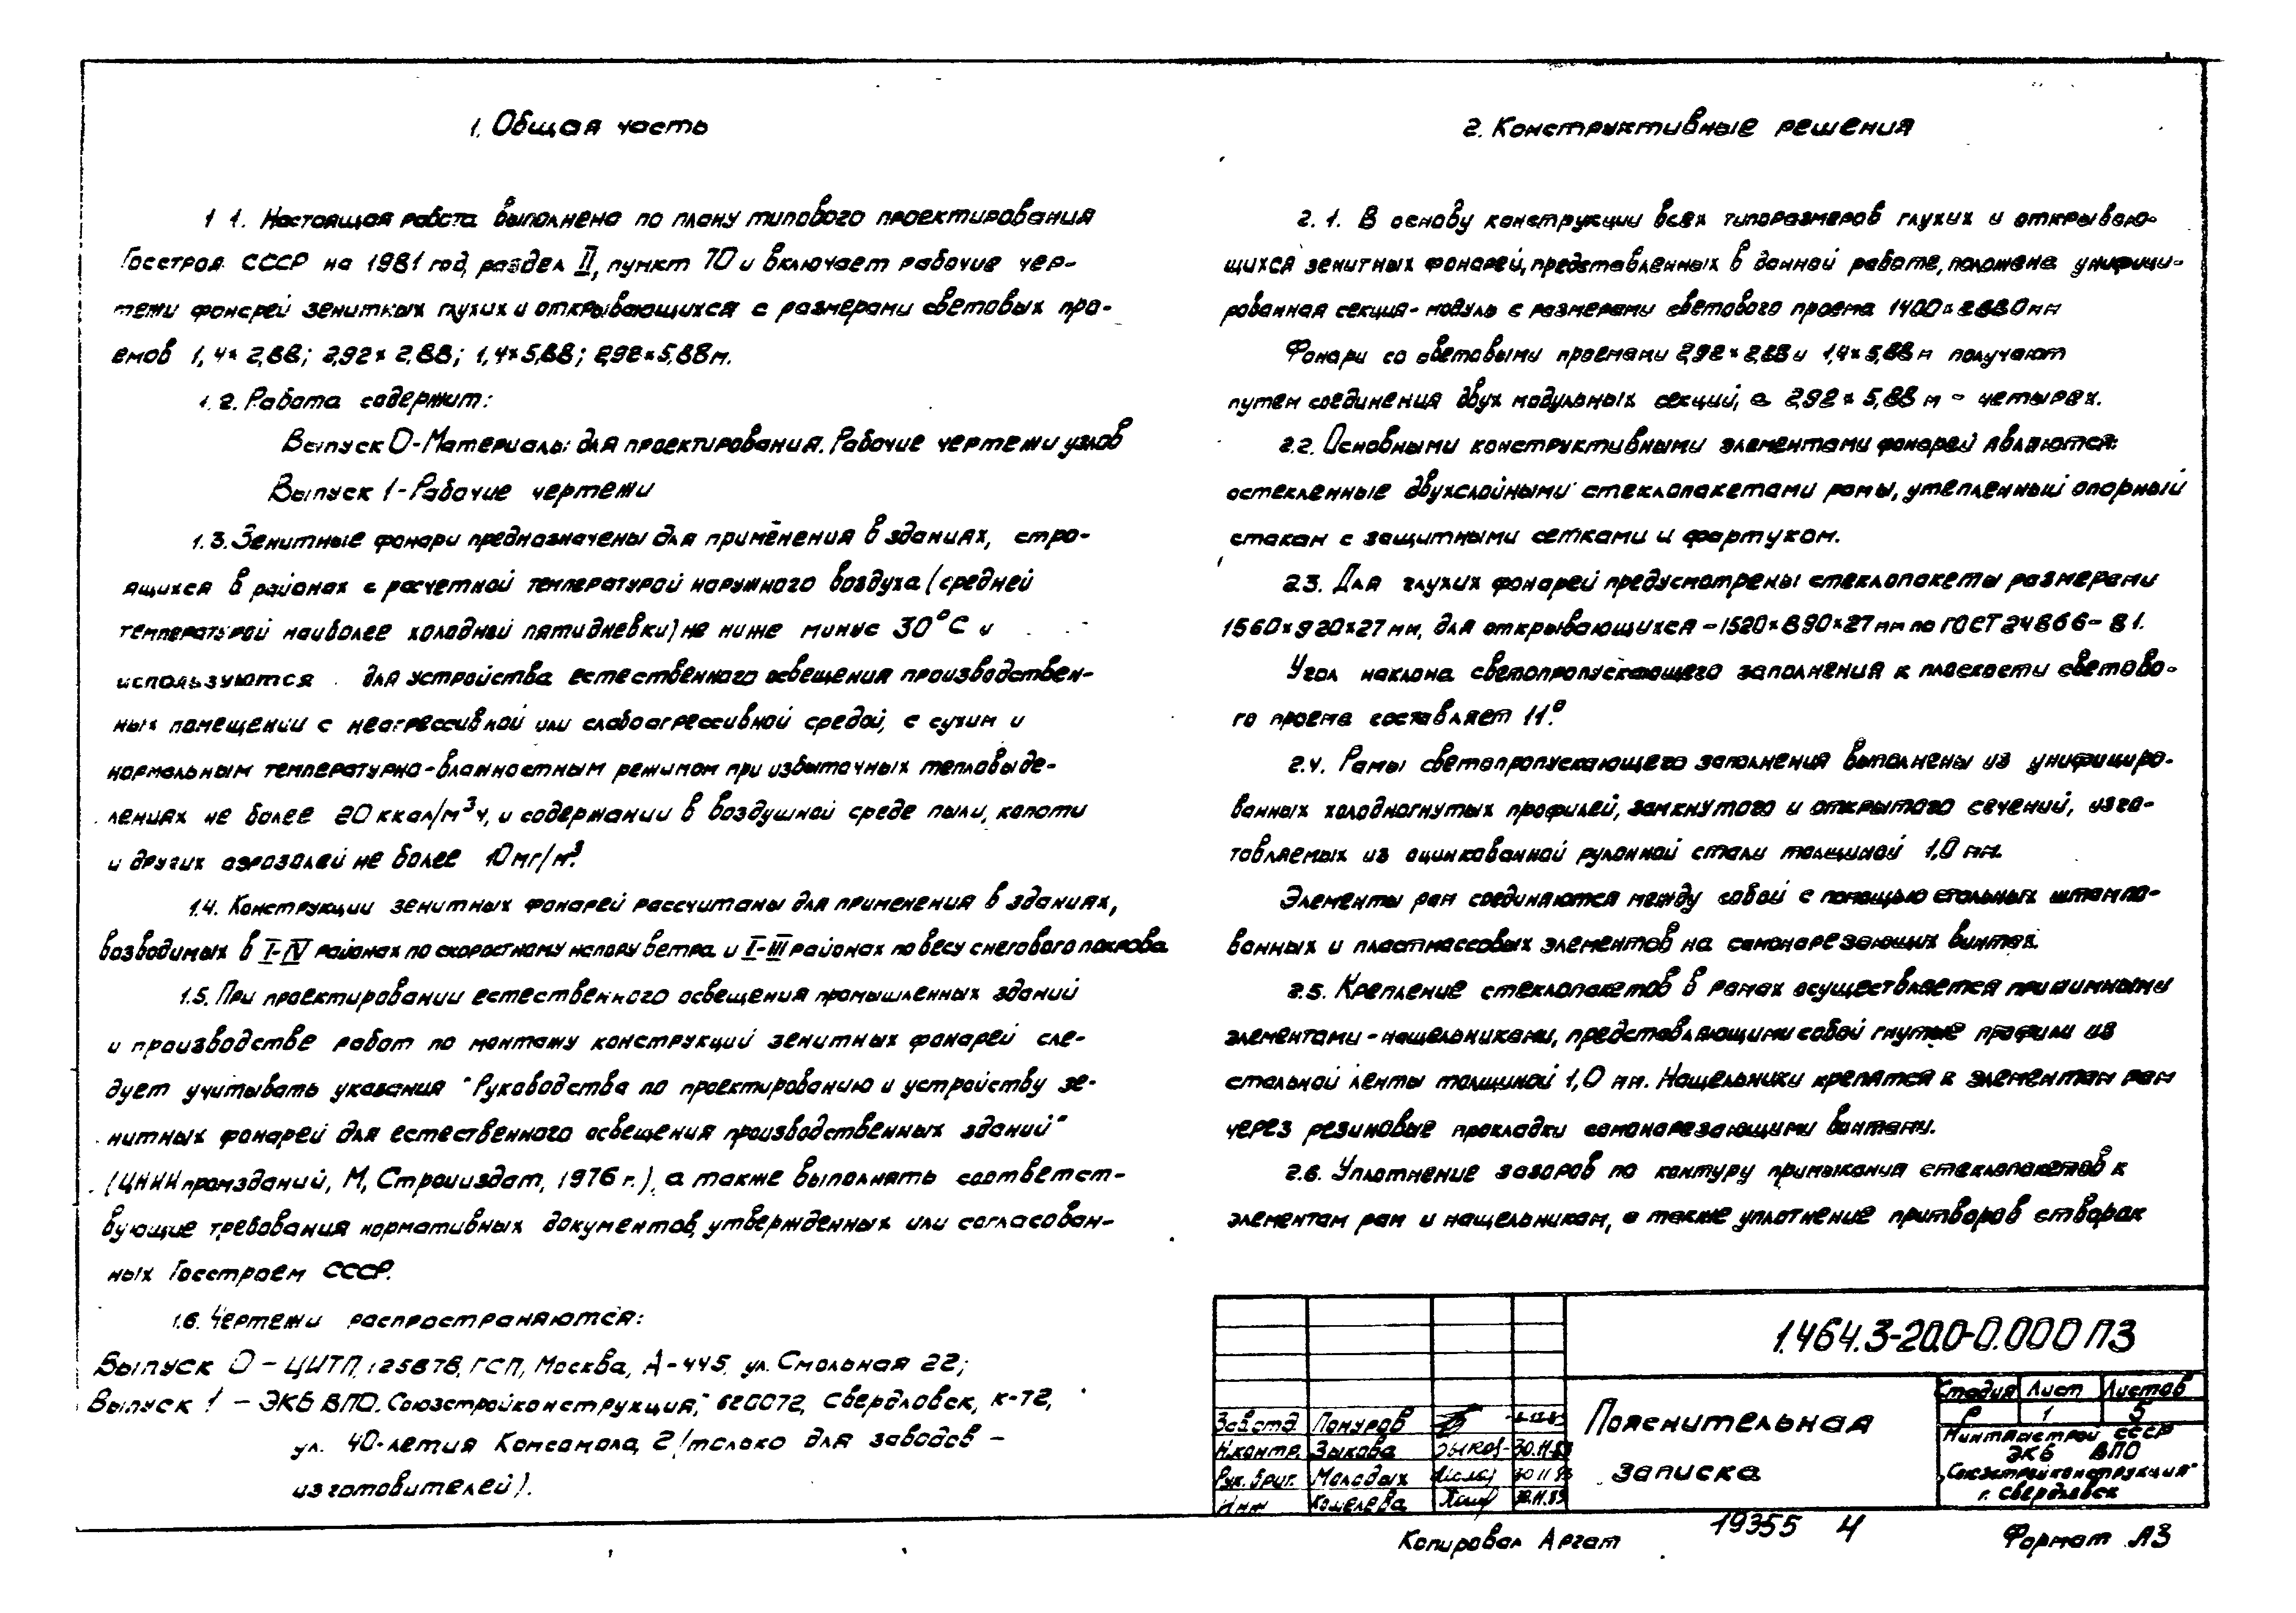 1. Общая часть
1 1. Настоящая работа выполнена по плану типового проектирования
Госстроя СССР на 1981 год, раздел II, пункт 70 и включает рабочие чер-
тежи фонарей зенитных глухих и открывающихся с размерами световых про-
емов 1,4×2,88; 2,92×2,88; 1,4×5,88; 2,92×5,88м.
1.2. Работа содержит:
Выпуск 0-Материалы для проектирования. Рабочие чертежи узлов
Выпуск 1-Рабочие чертежи
1.3. Зенитные фонари предназначены для применения в зданиях, стро-
ящихся в районах с расчетной температурой наружного воздуха (средней
температурой наиболее холодной пятидневки) не ниже минус 30°С и
используются для устройства естественного освещения производствен-
ных помещений с неагрессивной или слабоагрессивной средой, с сухим и
нормальным температурно-влажностным режимом при избыточных тепловыде-
лениях не более 20 ккал/м³ч, и содержании в воздушной среде пыли, копоти
и других аэрозолей не более 10 мг/м³.
1.4. Конструкции зенитных фонарей рассчитаны для применения в зданиях,
возводимых в I-IV районах по скоростному напору ветра и I-III районах по весу снегового покрова
1.5. При проектировании естественного освещения промышленных зданий
и производстве работ по монтажу конструкций зенитных фонарей сле-
дует учитывать указания "Руководства по проектированию и устройству зе-
нитных фонарей для естественного освещения производственных зданий"
(ЦНИИпромзданий, М, Стройиздат, 1976 г.), а также выполнять соответст-
вующие требования нормативных документов, утвержденных или согласован-
ных Госстроем СССР.
1.6. Чертежи распространяются:
Выпуск 0 - ЦИТП, 125878, ГСП, Москва, А-445, ул. Смольная 22;
Выпуск 1 - ЭКБ ВПО "Союзстройконструкция," 620072, Свердловск, К-72,
ул. 40-летия Комсомола, 2 (только для заводов -
изготовителей).
2. Конструктивные решения
2.1. В основу конструкции всех типоразмеров глухих и открываю-
щихся зенитных фонарей, представленных в данной работе, положена унифици-
рованная секция-модуль с размерами светового проема 1400×2880мм
Фонари со световыми проемами 2,92×2,88 и 1,4×5,88 м получают
путем соединения двух модульных секций, а 2,92×5,88 м - четырех.
2.2. Основными конструктивными элементами фонарей являются:
остекленные двухслойными стеклопакетами рамы, утепленный опорный
стакан с защитными сетками и фартуком.
2.3. Для глухих фонарей предусмотрены стеклопакеты размерами
1560×920×27мм, для открывающихся - 1520×890×27 мм по ГОСТ 24866-81.
Угол наклона светопропускающего заполнения к плоскости светово-
го проема составляет 11°.
2.4. Рамы светопропускающего заполнения выполнены из унифициро-
ванных холодногнутых профилей, замкнутого и открытого сечений, изго-
товляемых из оцинкованной рулонной стали толщиной 1,0 мм.
Элементы рам соединяются между собой с помощью стальных штампо-
ванных и пластмассовых элементов на самонарезающих винтах.
2.5. Крепление стеклопакетов в рамах осуществляется прижимными
элементами-нащельниками, представляющими собой гнутые профили из
стальной ленты толщиной 1,0 мм. Нащельники крепятся к элементам рам
через резиновые прокладки самонарезающими винтами.
2.6. Уплотнение зазоров по контуру примыкания стеклопакетов к
элементам рам и нащельникам, а также уплотнение притворов створок
1.464.3-20.0-0.000 ПЗ
Зав.отд. Понуров
Н.контр. Зыкова Зыков 30.11.83
Рук. бриг. Молодых 30 11 83
Инж Кошелева 30.11.83
Пояснительная
записка
Стадия Лист Листов
Р 1 5
Минтяжстрой СССР
ЭКБ ВПО
"Союзстройконструкция"
г. Свердловск
Копировал Аргат
19355 4
Формат А3